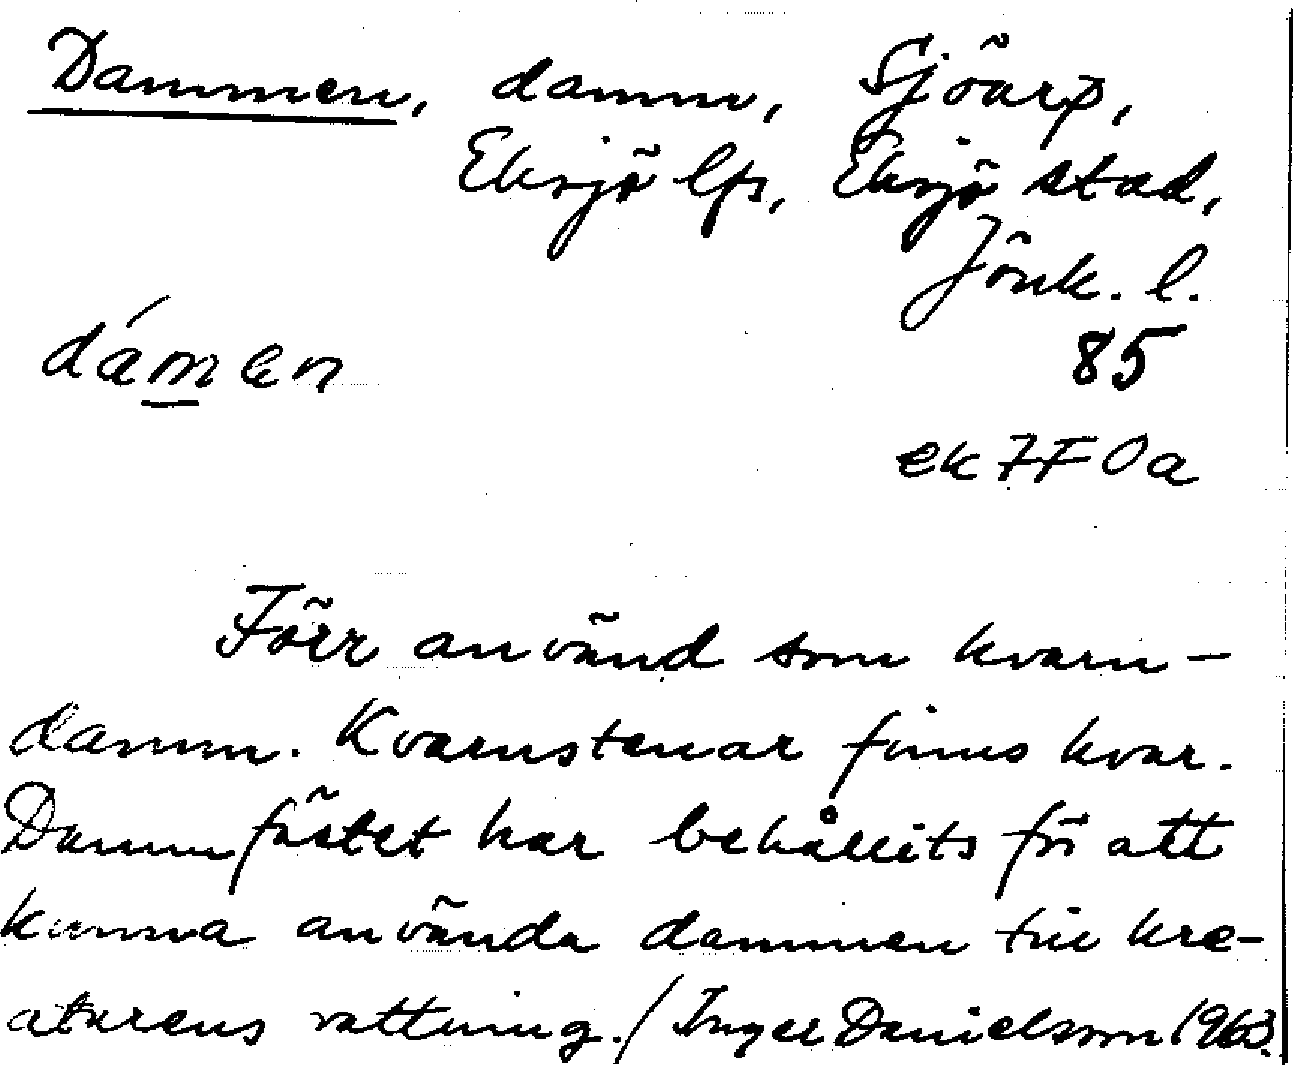 Dammen, damm, Sjöarp,
Eksjö lfs, Eksjö stad,
Jönk. l.
dámen
85
ek 7F 0a
Förr använd som kvarn-
damm. Kvarnstenar finns kvar.
Dammfästet har behållits för att
kunna använda dammen till kre-
aturens vattning. / Inger Danielsson 1963.